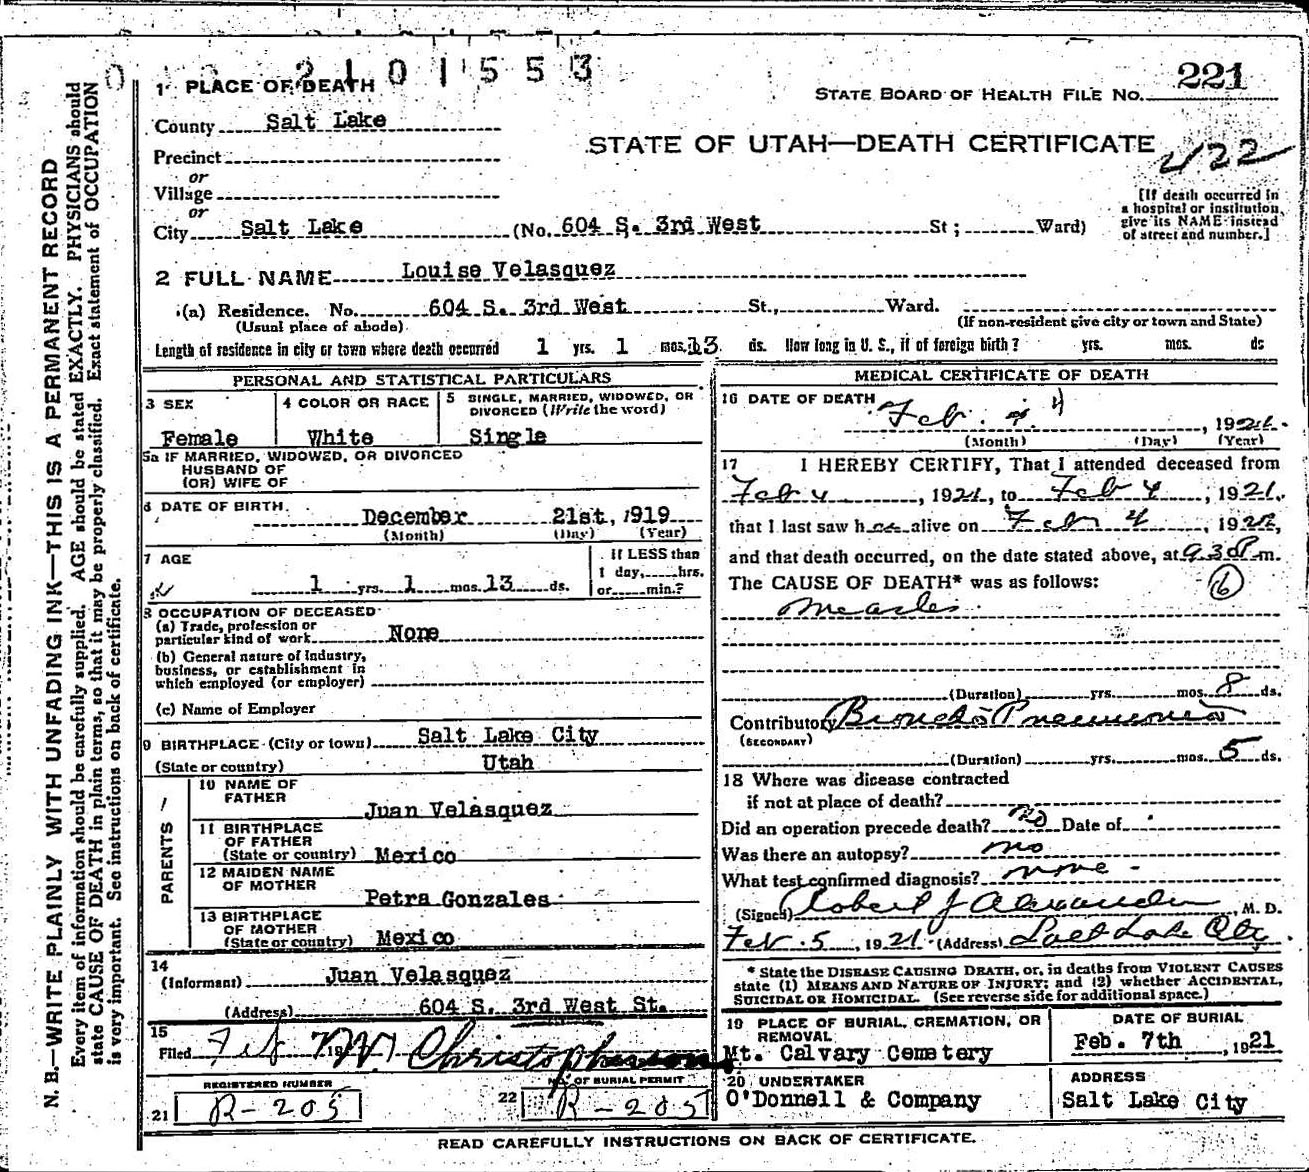 2101553
1 PLACE OF DEATH
STATE BOARD OF HEALTH FILE NO. 221
County Salt Lake
STATE OF UTAH—DEATH CERTIFICATE
422
Precinct
or
Village
or
City Salt Lake (No. 604 S. 3rd West St; Ward)
[If death occurred in
a hospital or institution,
give its NAME instead
of street and number.]
2 FULL NAME Louise Velasquez
(a) Residence. No. 604 S. 3rd West St., Ward.
(Usual place of abode) (If non-resident give city or town and State)
Length of residence in city or town where death occurred 1 yrs. 1 mos. 13 ds. How long in U. S., if of foreign birth? yrs. mos. ds
PERSONAL AND STATISTICAL PARTICULARS
3 SEX
Female
4 COLOR OR RACE
White
5 SINGLE, MARRIED, WIDOWED, OR
DIVORCED (Write the word)
Single
5a IF MARRIED, WIDOWED, OR DIVORCED
HUSBAND OF
(OR) WIFE OF
6 DATE OF BIRTH
December 21st, 1919
(Month) (Day) (Year)
7 AGE
1 yrs. 1 mos. 13 ds.
If LESS than
1 day, hrs.
or min.?
8 OCCUPATION OF DECEASED
(a) Trade, profession or
particular kind of work None
(b) General nature of Industry,
business, or establishment in
which employed (or employer)
(c) Name of Employer
9 BIRTHPLACE (City or town) Salt Lake City
(State or country) Utah
PARENTS
10 NAME OF
FATHER
Juan Velasquez
11 BIRTHPLACE
OF FATHER
(State or country) Mexico
12 MAIDEN NAME
OF MOTHER
Petra Gonzales
13 BIRTHPLACE
OF MOTHER
(State or country) Mexico
14
(Informant) Juan Velasquez
(Address) 604 S. 3rd West St.
15
Filed Feb 7 19 W Christophersons
REGISTERED NUMBER
21 R-205
NO. OF BURIAL PERMIT
22 R-205
MEDICAL CERTIFICATE OF DEATH
16 DATE OF DEATH
Feb. 4, 1921.
(Month) (Day) (Year)
17 I HEREBY CERTIFY, That I attended deceased from
Feb 4, 1921, to Feb 4, 1921.
that I last saw her alive on Feb 4, 1921,
and that death occurred, on the date stated above, at 9 30 P m.
The CAUSE OF DEATH* was as follows:
6
Measles
(Duration) yrs. mos. 8 ds.
Contributory Broncho Pneumonia
(SECONDARY)
(Duration) yrs. mos. 5 ds.
18 Where was disease contracted
if not at place of death?
Did an operation precede death? no Date of
Was there an autopsy? no
What test confirmed diagnosis? none
(Signed) Robert J Alexander, M. D.
Feb. 5, 1921 (Address) Salt Lake City
* State the DISEASE CAUSING DEATH, or, in deaths from VIOLENT CAUSES
state (1) MEANS AND NATURE OF INJURY; and (2) whether ACCIDENTAL,
SUICIDAL OR HOMICIDAL. (See reverse side for additional space.)
19 PLACE OF BURIAL, CREMATION, OR
REMOVAL
Mt. Calvary Cemetery
DATE OF BURIAL
Feb. 7th, 1921
20 UNDERTAKER
O'Donnell & Company
ADDRESS
Salt Lake City
READ CAREFULLY INSTRUCTIONS ON BACK OF CERTIFICATE.
N. B.—WRITE PLAINLY WITH UNFADING INK—THIS IS A PERMANENT RECORD
Every item of information should be carefully supplied. AGE should be stated EXACTLY. PHYSICIANS should
state CAUSE OF DEATH in plain terms, so that it may be properly classified. Exact statement of OCCUPATION
is very important. See instructions on back of certificate.